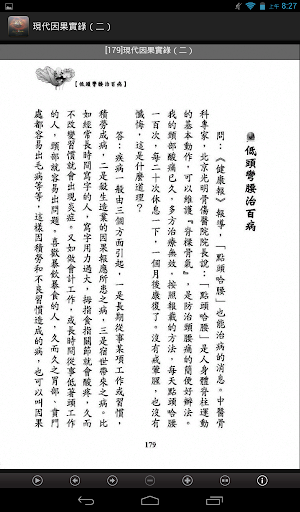 上午 8:27
現代因果實錄（二）
[179]現代因果實錄（二）
【低頭彎腰治百病】
低頭彎腰治百病
問：《健康報》報導，「點頭哈腰」也能治病的消息。中醫骨
科專家，北京光明骨傷醫院院長說：「點頭哈腰」是人身體脊柱運動
的基本動作，可以維護『脊樑骨氣』，是防治頸腰痛的簡便好辦法。
我的頸部酸痛已久，多方治療無效，按照報載的方法，每天點頭哈腰
一百次，每二十次休息一下，一個月後康復了。沒有戒葷腥，也沒有
懺悔，這是什麼道理？
答：疾病一般由三個方面引起，一是長期從事某項工作或習慣，
積勞成病，二是殺生造業的因果報應所患之病，三是宿世帶來之病。比
如經常長時間寫字的人，寫字用力過大，拇指食指關節就會酸疼，久而
不改變習慣就會出現炎症。又如做會計工作，或長時間從事低著頭工作
的人，頸部就容易出問題。喜歡暴飲暴食的人，久而久之胃部、賁門
處都容易出毛病等等，這樣因積勞和不良習慣造成的病，也可以叫因果
179